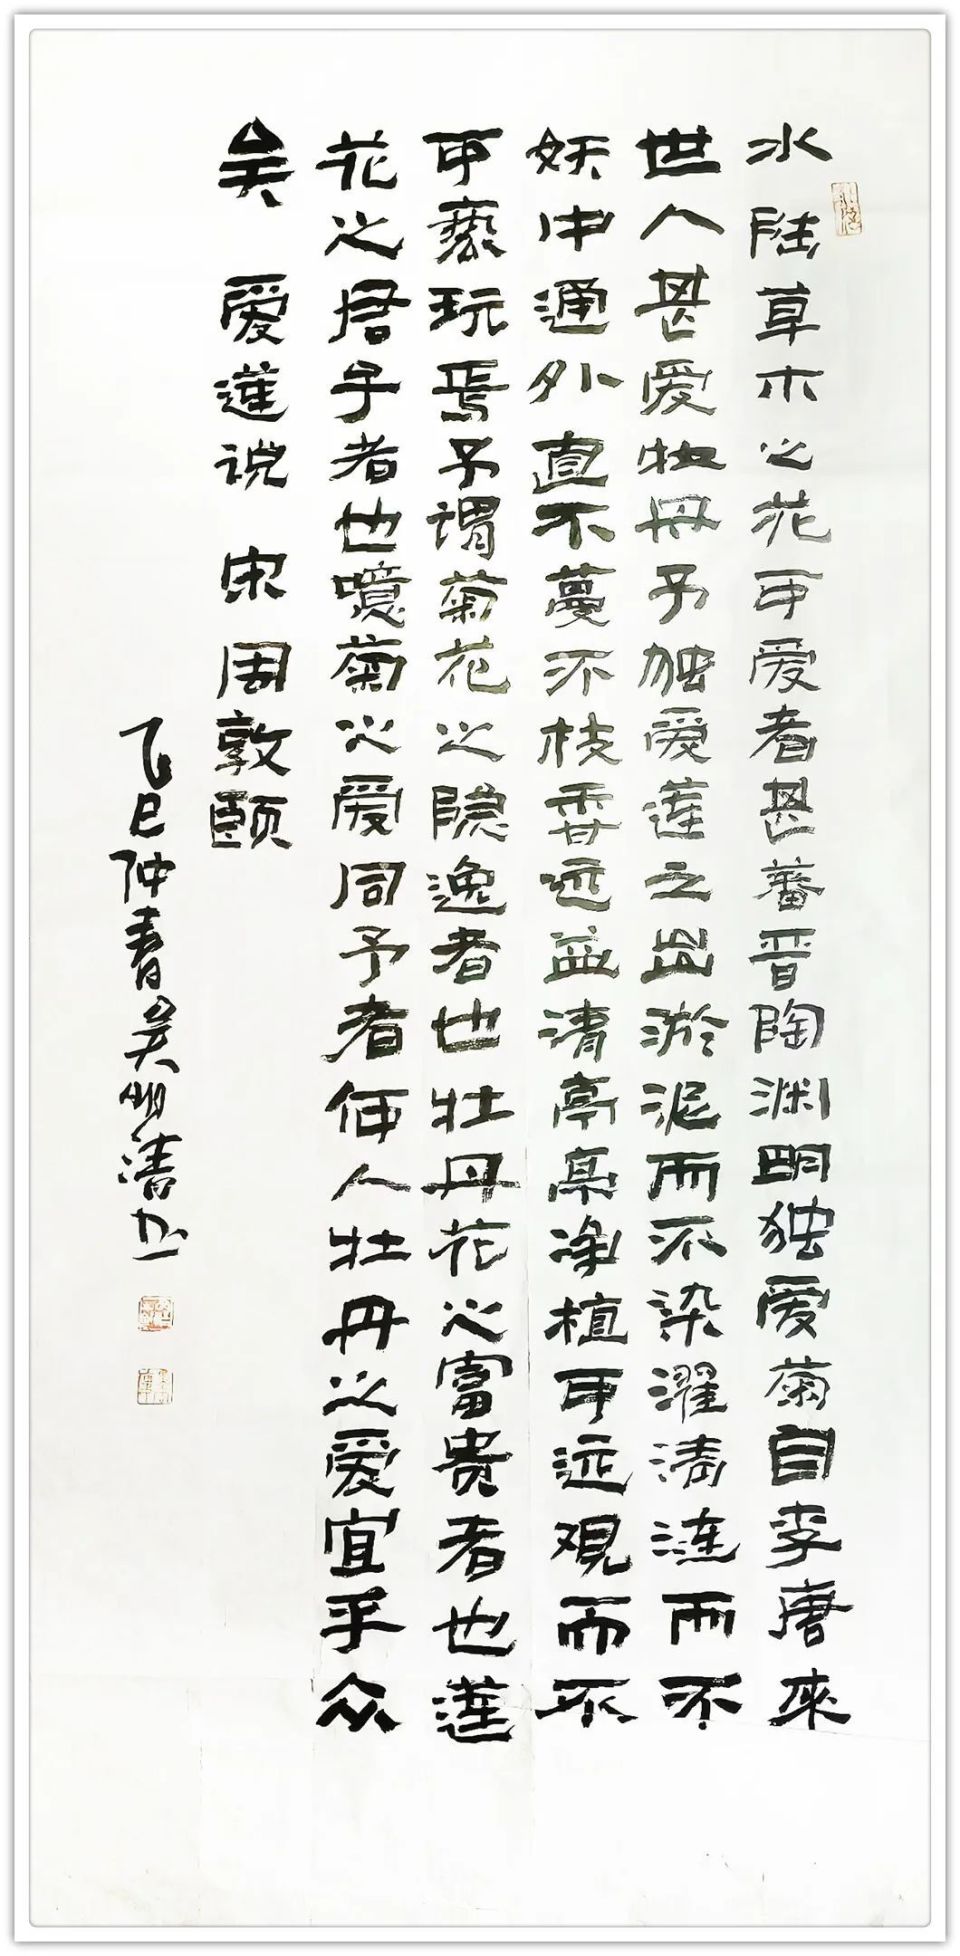 水陆草木之花可爱者甚蕃晋陶渊明独爱菊自李唐来
世人甚爱牡丹予独爱莲之出淤泥而不染濯清涟而不
妖中通外直不蔓不枝香远益清亭亭净植可远观而不
可亵玩焉予谓菊花之隐逸者也牡丹花之富贵者也莲
花之君子者也噫菊之爱同予者何人牡丹之爱宜乎众
矣 爱莲说 宋 周敦颐
乙巳仲春吴明清书